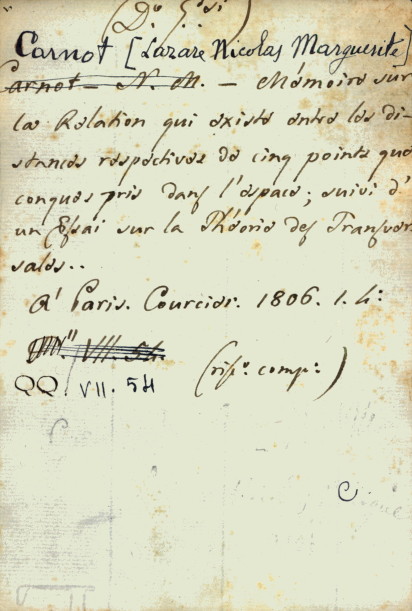 Carnot [Lazare Nicolas Marguerite]
Carnot - N. M. - Mémoire sur
la Relation qui existe entre les di-
stances respectives de cinq points quel
conques pris dans l'espace; suivi d'
un Essai sur la Théorie des Transver
sales..
A' Paris. Courcier. 1806. 1. 4:
VII. 54
QQ. VII. 54
C